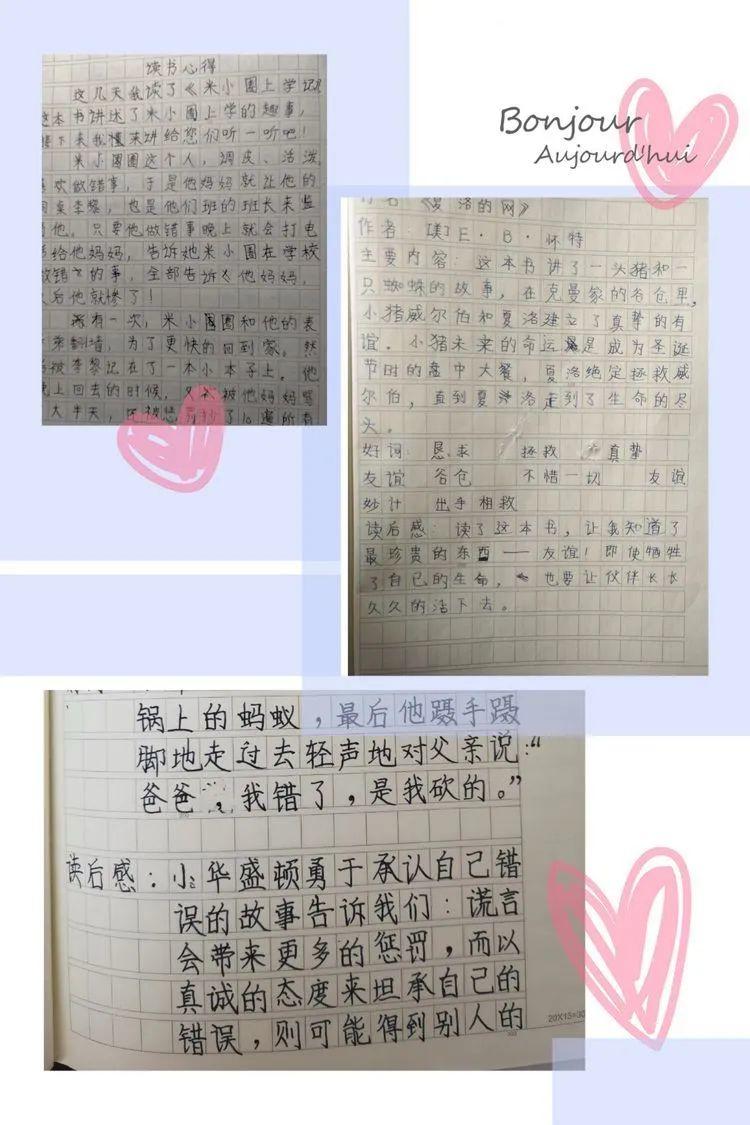 读书心得
这几天我读了《米小圈上学记》
这本书讲述了米小圈上学的趣事,
接下来我懂来讲给您们听一听吧!
米小圈圈这个人,调皮、活泼
喜欢做错事,于是他妈妈就让他的
同桌李黎,也是他们班的班长来监
他。只要他做错事晚上就会打电
给他妈妈,告诉她米小圈在学校
做错的事,全部告诉他妈妈,
后他就惨了!
有一次,米小圈圈和他的表
弟翻墙,为了更快的回到家。然
被李黎记在了一本小本子上。他
晚上回去的时候,被他妈妈骂
大半天,
Bonjour
Aujourd'hui
《夏洛的网》
作者:[美]E·B·怀特
主要内容:这本书讲了一头猪和一
只蜘蛛的故事,在克曼家的谷仓里,
小猪威尔伯和夏洛建立了真挚的有
谊。小猪未来的命运是成为圣诞
节时的盘中大餐,夏洛绝定拯救威
尔伯,直到夏洛走到了生命的尽
头。
好词:恳求 拯救 真挚
友谊 谷仓 不惜一切 友谊
妙计 出手相救
读后感:读了这本书,让我知道了
最珍贵的东西——友谊!即使牺牲
了自己的生命,也要让伙伴长长
久久的活下去。
锅上的蚂蚁,最后他蹑手蹑
脚地走过去轻声地对父亲说:“
爸爸,我错了,是我砍的。”
读后感:小华盛顿勇于承认自己错
误的故事告诉我们:谎言
会带来更多的惩罚,而以
真诚的态度来坦承自己的
错误,则可能得到别人的
20X15=30